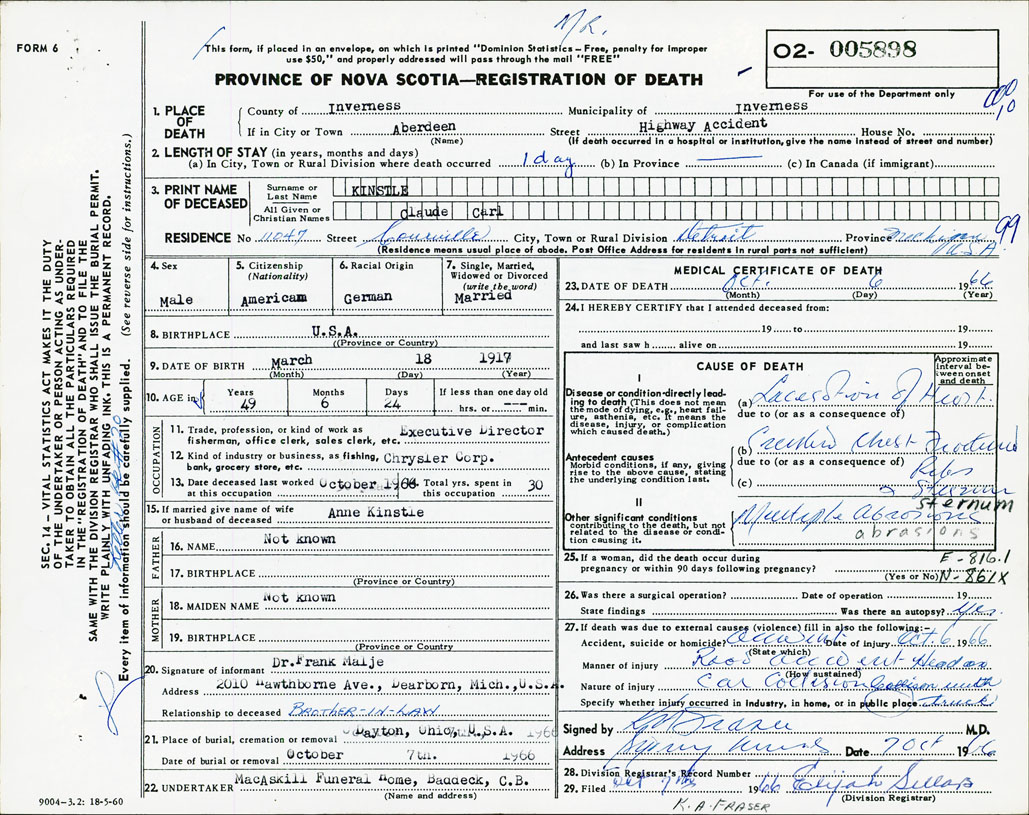 N.R.
FORM 6
This form, if placed in an envelope, on which is printed "Dominion Statistics – Free, penalty for improper
use $50," and properly addressed will pass through the mail "FREE"
02- 005898
PROVINCE OF NOVA SCOTIA—REGISTRATION OF DEATH
For use of the Department only
1. PLACE OF DEATH
County of Inverness Municipality of Inverness
If in City or Town Aberdeen Street Highway Accident House No.
(Name) (If death occurred in a hospital or institution, give the name instead of street and number)
2. LENGTH OF STAY (in years, months and days)
(a) In City, Town or Rural Division where death occurred 1 day (b) In Province — (c) In Canada (if immigrant)
3. PRINT NAME OF DECEASED
Surname or Last Name KINSTLE
All Given or Christian Names Claude Carl
RESIDENCE No 11047 Street Courville City, Town or Rural Division Detroit Province Michigan USA
99
(Residence means usual place of abode. Post Office Address for residents in rural parts not sufficient)
4. Sex Male
5. Citizenship (Nationality) American
6. Racial Origin German
7. Single, Married, Widowed or Divorced (write the word) Married
8. BIRTHPLACE U.S.A.
(Province or Country)
9. DATE OF BIRTH March 18 1917
(Month) (Day) (Year)
10. AGE in Years 49 Months 6 Days 24 If less than one day old hrs. or --- min.
OCCUPATION
11. Trade, profession, or kind of work as fisherman, office clerk, sales clerk, etc. Executive Director
12. Kind of industry or business, as fishing, bank, grocery store, etc. Chrysler Corp.
13. Date deceased last worked at this occupation October 1966 Total yrs. spent in this occupation 30
15. If married give name of wife or husband of deceased Anne Kinstle
FATHER
16. NAME Not known
17. BIRTHPLACE
(Province or Country)
MOTHER
18. MAIDEN NAME Not known
19. BIRTHPLACE
(Province or Country)
20. Signature of informant Dr.Frank Malje
Address 2010 Hawthborne Ave., Dearborn, Mich.,U.S.A.
Relationship to deceased BROTHER-IN-LAW
21. Place of burial, cremation or removal Dayton, Ohio, U.S.A. 1966
Date of burial or removal October 7th. 1966
22. UNDERTAKER MacAskill Funeral Home, Baddeck, C.B.
(Name and address)
9004–3.2: 18-5-60
MEDICAL CERTIFICATE OF DEATH
23. DATE OF DEATH Oct. 6 1966
(Month) (Day) (Year)
24. I HEREBY CERTIFY that I attended deceased from:
19 to 19
and last saw h alive on 19
CAUSE OF DEATH
Approximate interval between onset and death
I
Disease or condition directly leading to death (This does not mean the mode of dying, e.g., heart failure, asthenia, etc. It means the disease, injury, or complication which caused death.)
(a) Laceration of Heart
due to (or as a consequence of)
Antecedent causes
Morbid conditions, if any, giving rise to the above cause, stating the underlying condition last.
(b) Crushed Chest Fractured
due to (or as a consequence of) Ribs
(c) & Sternum
sternum
II
Other significant conditions contributing to the death, but not related to the disease or condition causing it.
Multiple abrasions
abrasions
25. If a woman, did the death occur during pregnancy or within 90 days following pregnancy?
(Yes or No)
E-816.1
N-861X
26. Was there a surgical operation? Date of operation 19
State findings Was there an autopsy? yes.
27. If death was due to external causes (violence) fill in also the following:-
Accident, suicide or homicide? Accident Date of injury Oct. 6 1966
(State which)
Manner of injury Road accident Head on
(How sustained)
Nature of injury Car Collision Collision with
Specify whether injury occurred in industry, in home, or in public place truck
Signed by M.D.
Address Date 7 Oct 1966
28. Division Registrar's Record Number
29. Filed Oct 7th 1966 Elijah
(Division Registrar)
K.A. FRASER
SEC. 14 – VITAL STATISTICS ACT MAKES IT THE DUTY
OF THE UNDERTAKER OR PERSON ACTING AS UNDER-
TAKER TO OBTAIN ALL THE PARTICULARS REQUIRED
IN THE "REGISTRATION OF DEATH" AND TO FILE THE
SAME WITH THE DIVISION REGISTRAR WHO SHALL ISSUE THE BURIAL PERMIT.
WRITE PLAINLY WITH UNFADING INK. THIS IS A PERMANENT RECORD.
Every item of information should be carefully supplied. (See reverse side for instructions.)